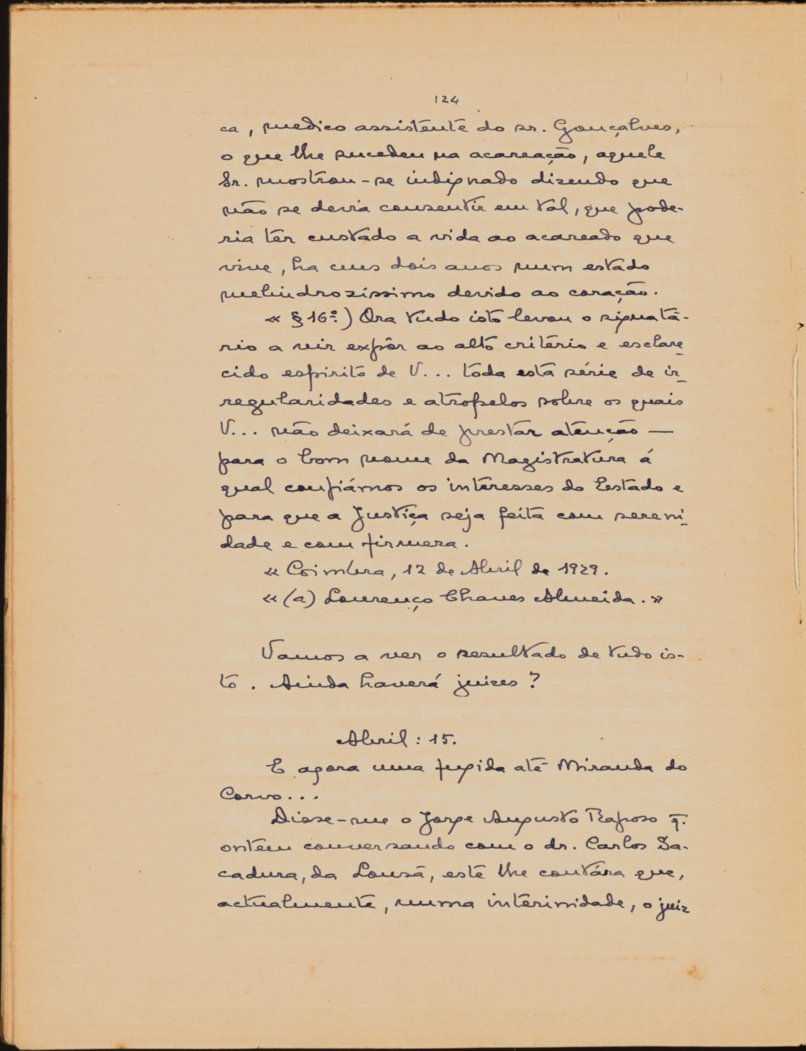 124
ca, medico assistente do sr. Gonçalves,
o que lhe sucedeu na acareação, aquele
Sr. mostrou-se indignado dizendo que
não se devia consentir em tal, que pode-
ria têr custado a vida ao acareado que
vive, ha uns dois anos num estado
melindrozissimo devido ao coração.
« § 16º) Ora tudo isto levou o signatá-
rio a vir expôr ao alto critério e esclare-
cido espirito de V... toda esta série de ir-
regularidades e atropelos sobre os quais
V... não deixará de prestar atenção —
para o bom nome da Magistratura á
qual confiámos os interesses do Estado e
para que a Justiça seja feita com sereni-
dade e com firmeza.
« Coimbra, 12 de Abril de 1929.
« (a) Lourenço Chaves Almeida. »
Vamos a ver o resultado de tudo is-
to. Ainda haverá juizes?
Abril: 15.
E agora uma fugida até Miranda do
Corvo...
Disse-me o Jorge Augusto Raposo q.
ontem conversando com o dr. Carlos Sa-
cadura, da Lousã, este lhe contára que,
actualmente, numa interinidade, o juiz